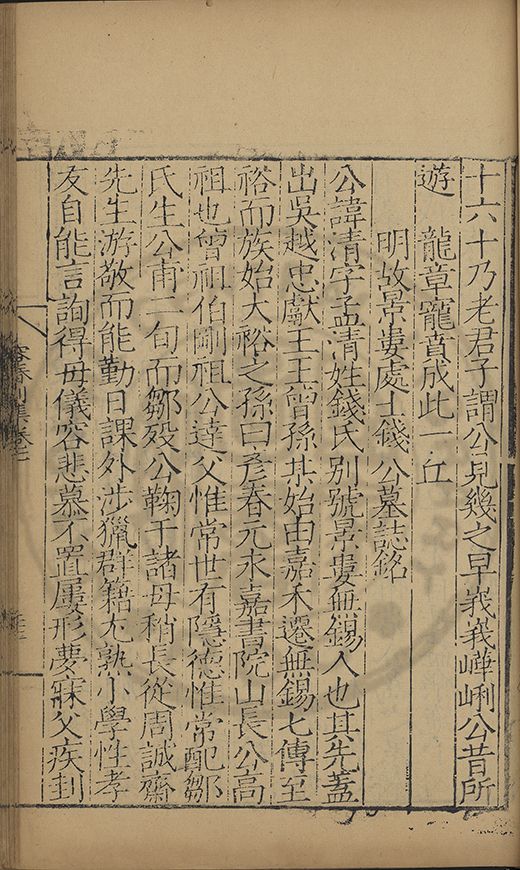 十六十乃老君子謂公見幾之早峩峩嶂峢公昔所
遊　龍章寵賁成此一丘
明故景婁處士錢公墓誌銘
公諱清字孟清姓錢氏別號景婁無錫人也其先蓋
出吳越忠獻王王曾孫某始由嘉禾遷無錫七傳至
裕而族始大裕之孫曰彥春元永嘉書院山長公高
祖也曾祖伯剛祖公達父惟常世有隱德惟常配鄒
氏生公甫二旬而鄒歿公鞠于諸母稍長從周誠齋
先生游敬而能勤日課外涉獵群籍尤熟小學性孝
友自能言詢得母儀容悲慕不置屢形夢寐父疾刲